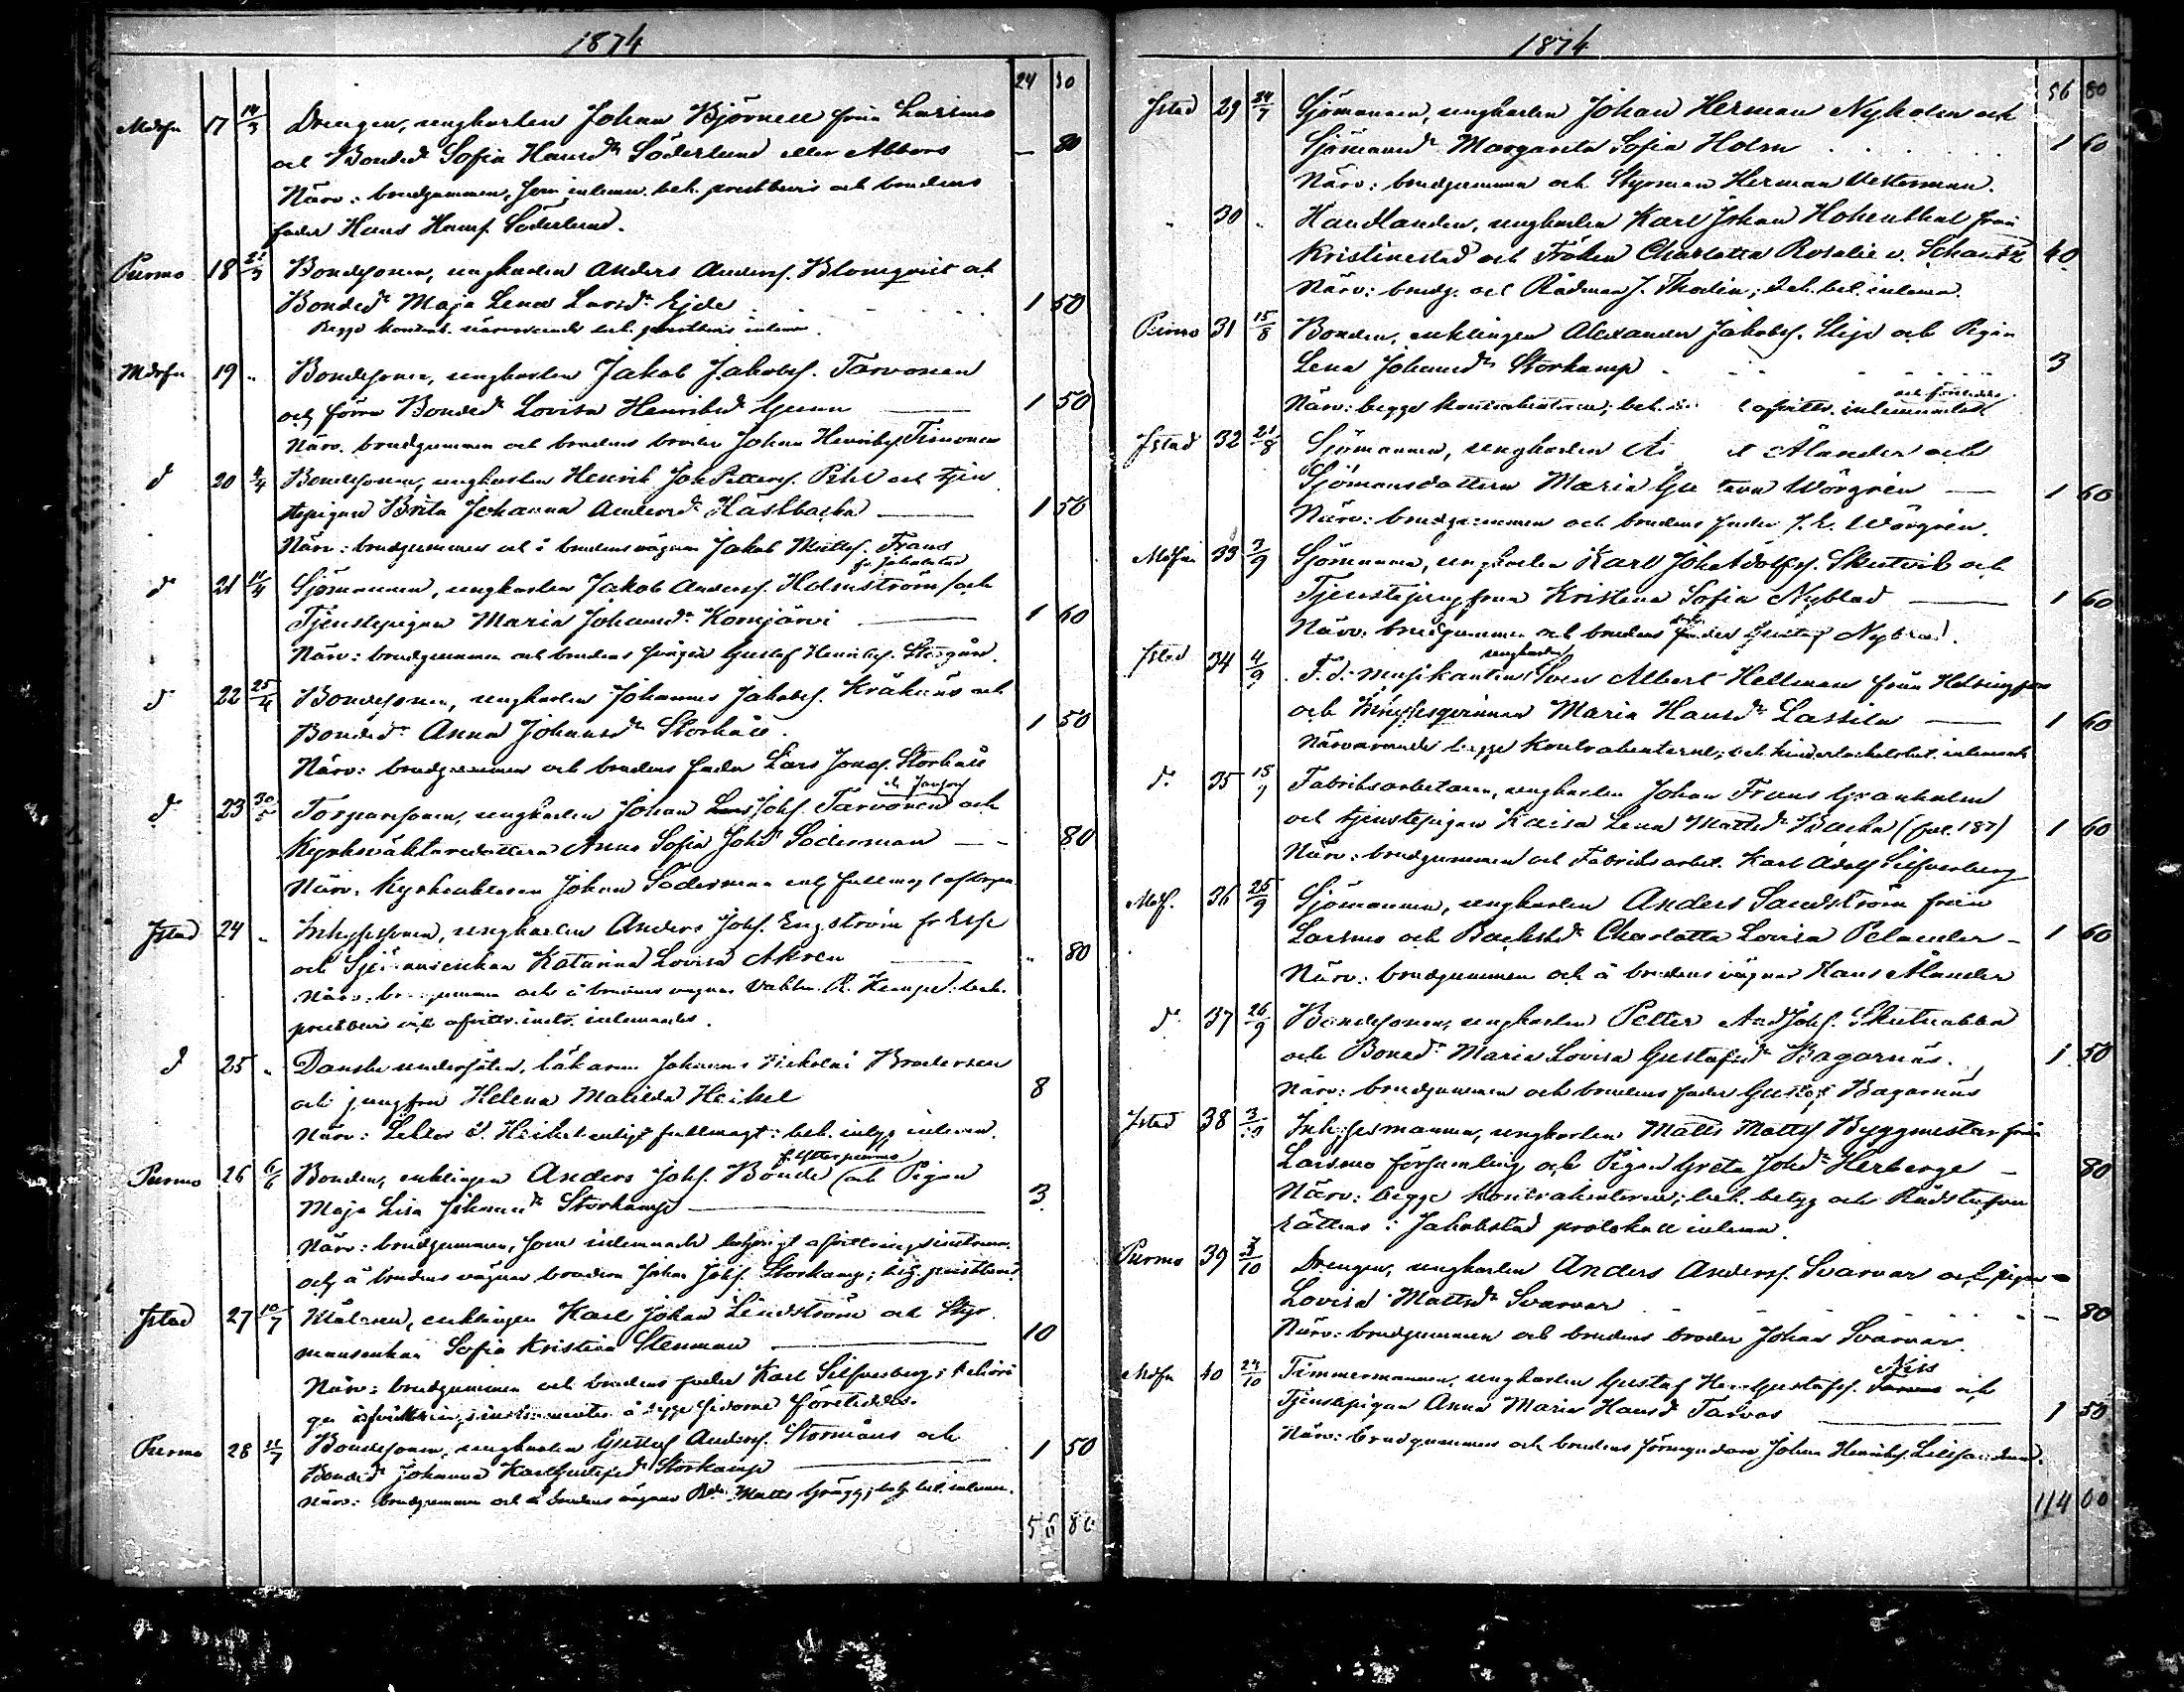 1874
24 30
Mdrfn 17 14/3 Drengen, ungkarlen Johan Björnell från Larsmo
och Bonded. Sofia Hansdr Söderlund eller Abbors — 80
Närv: brudgummen, som inlemn. beh. prestbevis och brudens
fader Hans Hansf. Söderlund.
Purmo 18 21/3 Bondesonen, ungkarlen Anders Andersf. Blomqvist och
Bonded. Maja Lena Larsdr Ejde 1 50
Begge kontrah. närvarande beh. prestbevis inlemn.
Mdrfn 19 " Bondesonen, ungkarlen Jakob Jakobsf. Tarvonen
och förra Bonded. Lovisa Henriksdr Gunn — 1 50
Närv. brudgummen och brudens broder Johan Henriksf. Timonen
d 20 4/4 Bondesonen, ungkarlen Henrik Joh Pettersf. Pihl och tjen
stepigan Brita Johanna Andersdr Hästbacka — 1 50
Närv: brudgummen och å brudens vägnar Jakob Mattsf. Frans
fr Jakobstad
d 21 11/4 Sjömannen, ungkarlen Jakob Andersf. Holmström / och
Tjenstepigan Maria Johansdr Komjärvi — 1 60
Närv: brudgummen och brudens svåger Gustaf Henriksf. Storgård.
d 22 25/4 Bondesonen, ungkarlen Johannes Jakobsf. Kråknäs och
Bonded. Anna Johansdr Storkåll. 1 50
Närv: brudgummen och brudens fader Lars Jonaf. Storkåll
d 23 30/5 Torparsonen, ungkarlen Johan Johf. Tarvonen och
Kyrkväktaredottern Anna Sofia Johdr Söderman — - 80
Närv. Kyrkväktaren Johan Söderman enl. fullmagt af
Jstad 24 " Inhysessonen, ungkarlen Anders Johf. Engström fr Esse
och Sjömansenkan Katarina Lovisa Akrén — " 80
Närv: brudgummen och å brudens vägnar R. Kempe: beh.
prestbevis och afvittr. instr. inlemnades.
d 25 " Danske undersåten, läkaren Johannes Nikolai Brodersen
och jungfru Helena Matilda Heikel 8
Närv: Lektor Heikel enligt fullmagt: beh. intyg inlemn.
fr Ytterpurmo
Purmo 26 6/6 Bonden, enklingen Anders Johf. Bonde (och Pigan
Maja Lisa Johansdr Storkamp — 3.
Närv: brudgummen, som inlemnade behörigt afvittringsinstrum.
och å brudens vägnar brodern Johan Johf. Storkamp;
Jstad 27 10/7 Målaren, enklingen Karl Johan Lindström och Styr
mansenkan Sofia Kristina Stenman — 10
Närv: brudgummen och brudens fader Karl Silfversberg; behöri
ga afvittringsinstrumenter å begge sidorne företeddes.
Purmo 28 11/7 Bondesonen, ungkarlen Gustaf Andersf. Stormåns och
Bonded. Johanna Karl Gustafsdr Storkamp — 1 50
Närv: brudgummen och å brudens vägnar Matts Grägg; inlemn.
56 80
1874
56 80
Jstad 29 24/7 Sjömannen, ungkarlen Johan Herman Nyholm och
Sjömansdr Margareta Sofia Holm 1 60
Närv: brudgummen och Styrman Herman Vesterman.
" 30 " Handlanden, ungkarlen Karl Johan Hohenthal från
Kristinestad och Fröken Charlotta Rosalie v. Schantz 40
Närv: brudg. och Rådman J. Thodin; beh. bet. inlemn.
Purmo 31 15/8 Bonden, enklingen Alexander Jakobsf. Slip och Pigan
Lena Johansdr Storkamp 3
Närv: begge kontrahenterne; beh. afvittr. inlemnades
Jstad 32 21/8 Sjömannen, ungkarlen Ålander och
Sjömansdottern Maria Wörgrén — 1 60
Närv: brudgummen och brudens fader J. E. Wörgrén.
Mdrfn 33 3/9 Sjömannen, ungkarlen Karl Joh Adolfsf. Skutvik och
Tjenstejungfrun Kristina Sofia Nyblad — 1 60
Närv: brudgummen och brudens fader Gustaf Nyblad.
ungkarlen
Jstad 34 4/9 F. d. musikanten Sven Albert Hellman från Helsingfors
och Inhysesqvinnan Maria Hansdr Lassila — 1 60
Närvarande begge kontrahenterne; beh. hinderlöshetsbet. inlemnade
d. 35 15/9 Fabriksarbetaren, ungkarlen Johan Frans Granholm
och tjenstepigan Kaisa Lena Mattsdr Backa (pag. 187) 1 60
Närv: brudgummen och Fabriksarbet. Karl Adolf Silfversberg
Mdrf. 36 25/9 Sjömannen, ungkarlen Anders Sandström från
Larsmo och Backstd. Charlotta Lovisa Pelander - 1 60
Närv: brudgummen och å brudens vägnar Hans Ålander
d. 37 26/9 Bondesonen, ungkarlen Petter And Johf. Skutnabba
och Bonded. Maria Lovisa Gustafsdr Bagarnäs. 1 50
Närv: brudgummen och brudens fader Gustaf Bagarnäs
Jstad 38 3/10 Inhysesmannen, ungkarlen Matts Mattsf Byggmestar från
Larsmo församling och Pigan Greta Johdr Herberge - 80
Närv: begge kontrahenterne; beh. betyg och Rådstufvu
rättens i Jakobstad protokoll inlemn.
Purmo 39 3/10 Drengen, ungkarlen Anders Andersf. Svarvar och pigan
Lovisa Mattsdr Svarvar — 80
Närv: brudgummen och brudens broder Johan Svarvar.
Niss
Mdrfn 40 24/10 Timmermannen, ungkarlen Gustaf Gustafsf. och
Tjenstepigan Anna Maria Hansd Tarvas — 1 50
Närv: brudgummen och brudens förmyndare Johan Henriksf.
114 00